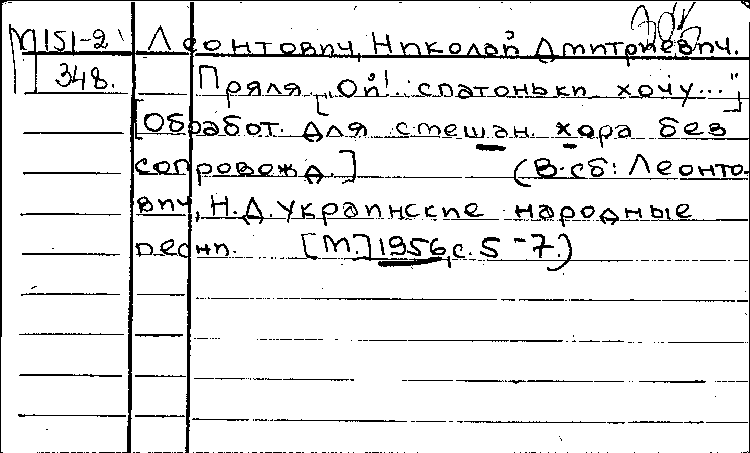 М151-2 Леонтович, Николай Дмитриевич.
348. Пряля „Ой! спатоньки хочу..."
[Обработ. для смешан. хора без
сопровожд.] (В сб: Леонто-
вич, Н.Д. Украинские народные
песни. [М.] 1956, с. 5-7.)